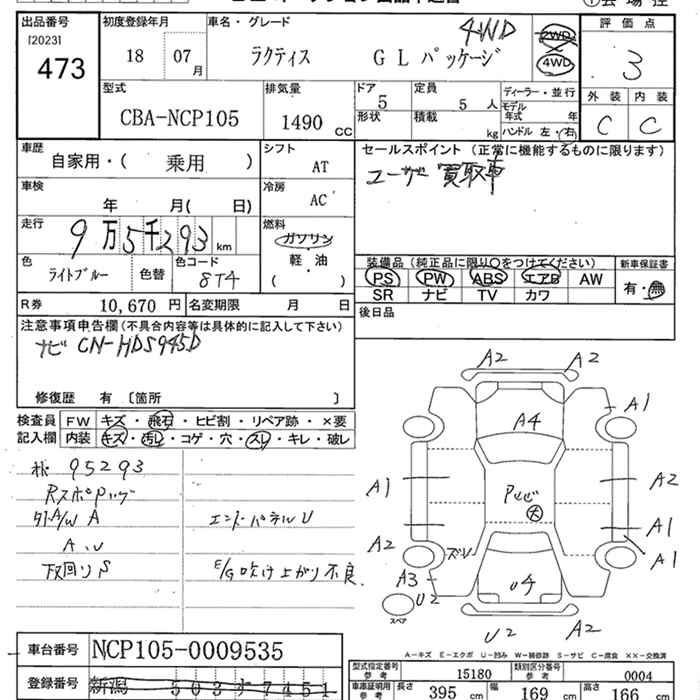 出品番号
[2023]
473
初度登録年月
18 07 月
車名・グレード
ラクティス G L パッケージ
4WD
2WD
4WD
評価点
3
外装 内装
C C
型式
CBA-NCP105
排気量
1490 CC
ドア
5
定員
5 人
形状
積載
kg
ディーラー・並行
モデル
年式 年
ハンドル 左・右
車歴
自家用・( 乗用 )
シフト
AT
車検
年 月( 日)
冷房
AC
走行
9万5千293 km
燃料
ガソリン
軽・油
( )
色
ライトブルー
色替
色コード
8T4
R券 10,670 円
名変期限 月 日
セールスポイント(正常に機能するものに限ります)
ユーザー買取車
装備品(純正品に限り○をつけてください)
PS PW ABS エアB AW
SR ナビ TV カワ
新車保証書
有・無
後日品
注意事項申告欄(不具合内容等は具体的に記入して下さい)
ナビ CN-HDS945D
修復歴 有 〔箇所 〕
検査員
記入欄
FW キズ・飛石・ヒビ割・リペア跡・×要
内装 キズ・汚レ・コゲ・穴・スレ・キレ・破レ
95293
外A/W A
エンドパネルU
A、U
下回りS
E/G吹け上がり不良
A2 A2
A4
A1
A1
A2
A1
A2
A1
A3
U2
U4
U2 A2
大
スペア
A-キズ E-エクボ U-凹み W-補修跡 S-サビ C-腐食 ××-交換済
車台番号
NCP105-0009535
登録番号
新潟 503 7451
型式指定番号
参考
15180
類別区分番号
参考
0004
車庫証明用
参考
長さ 395 cm
幅 169 cm
高さ 166 cm